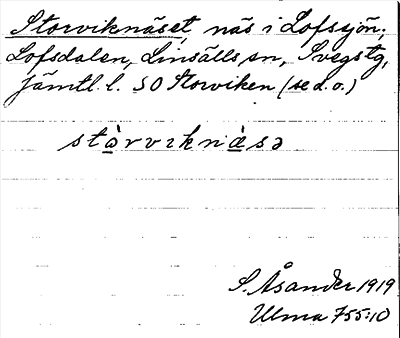 Storviknäset, näs i Lofssjön,
Lofsdalen, Linsälls sn, Svegs tg,
Jämtl. l. SO Storviken (se d. o.)
stòrvıknä̀sə
S. Åsander 1919
Ulma 755:10